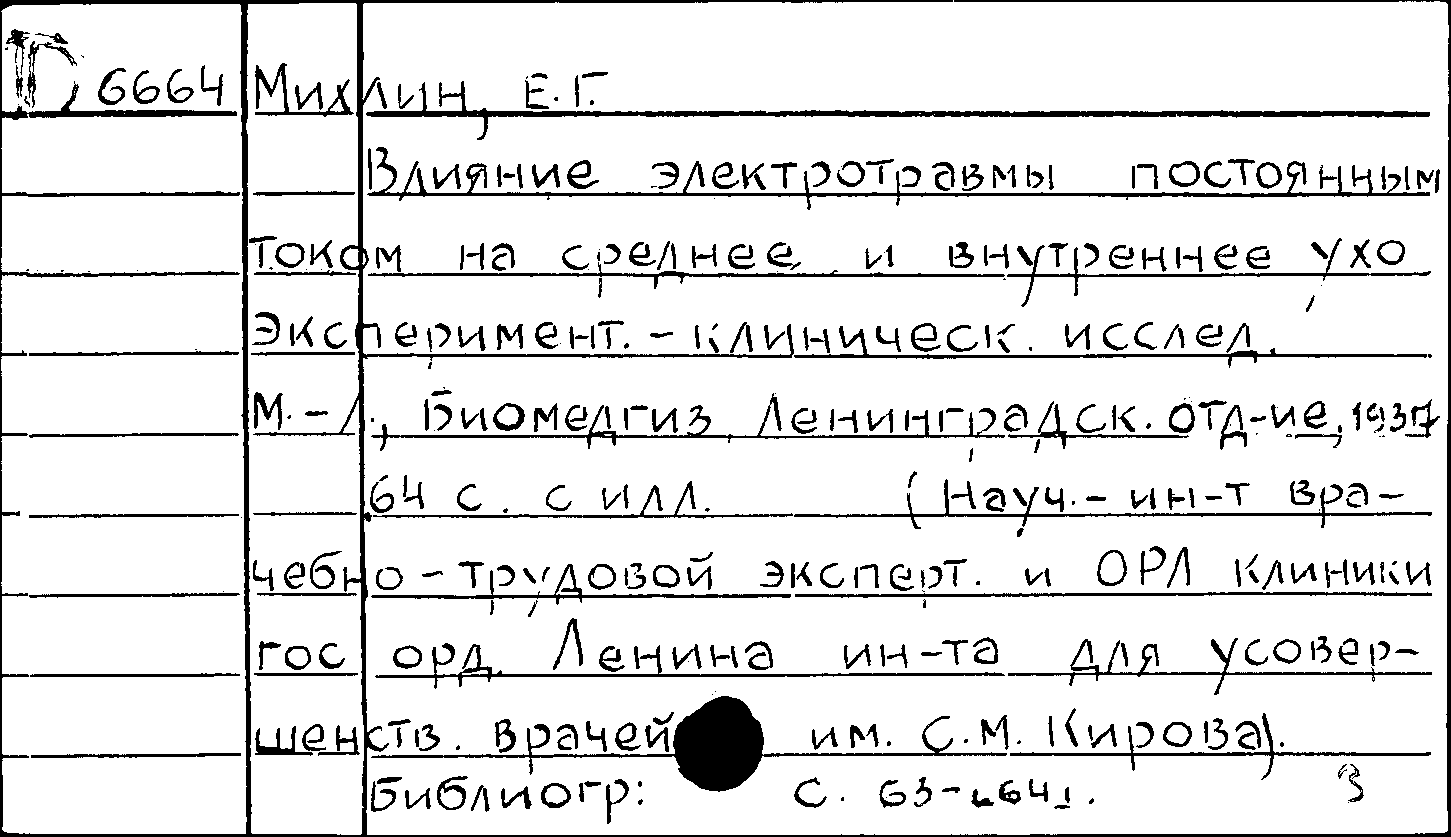 D 6664 Михлин, Е.Г.
Влияние электротравмы постоянным
током на среднее и внутреннее ухо
Эксперимент.-клиническ. исслед.
М.-Л., Биомедгиз, Ленинградск. отд-ие, 1937
64 с. с илл. (Науч.-ин-т вра-
чебно-трудовой эксперт. и ОРЛ клиники
гос орд. Ленина ин-та для усовер-
шенств. врачей им. С.М. Кирова).
Библиогр: с. 63-64. 3